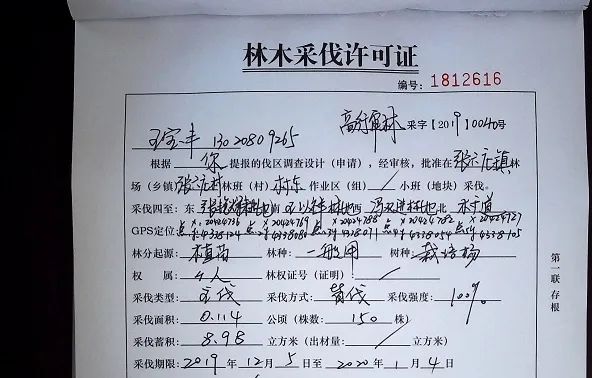 林木采伐许可证
编号:1812616
高行审林 采字【2019】0040号
王宝丰 13020809265
根据 你 提报的伐区调查设计(申请),经审核,批准在张六庄镇林
场(乡镇)张六庄村林班(村)村东 作业区(组) 小班(地块)采伐。
采伐四至:东 南 西 北
GPS定位:
林分起源:植苗 林种:一般用 树种:栽培杨
权 属:个人 林权证号(证明):
采伐类型:主伐 采伐方式:皆伐 采伐强度:100%
采伐面积:0.114 公顷(株数:150 株)
采伐蓄积:8.98 立方米(出材量: 立方米)
采伐期限:2019 年 12 月 5 日至 2020 年 1 月 4 日
第一联 存根